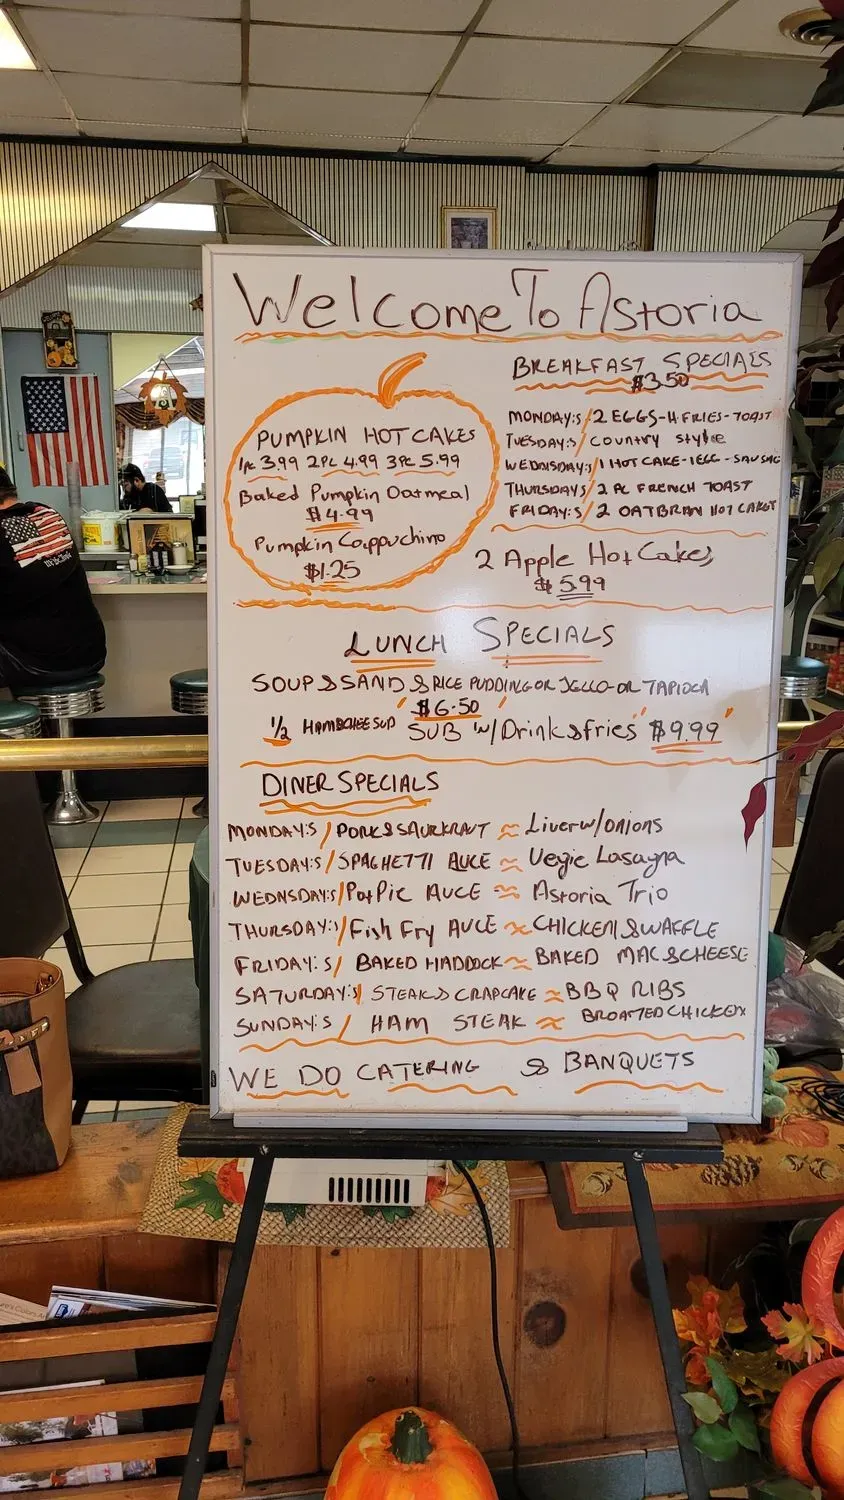 Welcome To Astoria
BREAKFAST SPECIALS
$3.50
MONDAY:S/2 EGGS-H.FRIES-TOAST
TUESDAY:S/COUNTRY STYLE
WEDNSDAY:S/1 HOT CAKE-1EGG-SAUSAG
THURSDAY:S/2 PC FRENCH TOAST
FRIDAY:S/2 OATBRAN HOT CAKES
PUMPKIN HOT CAKES
1PC 3.99 2PC 4.99 3PC 5.99
Baked Pumpkin Oatmeal
$4.99
Pumpkin Cappuchino
$1.25
2 Apple Hot Cakes
$5.99
LUNCH SPECIALS
SOUP & SAND & RICE PUDDING OR JELLO-OR TAPIOCA
"$6.50"
1/2 SUB W/Drink & fries "$9.99"
DINER SPECIALS
MONDAY:S / PORK & SAURKRAUT ≈ Liver w/onions
TUESDAY:S / SPAGHETTI AUCE ≈ Vegie Lasagna
WEDNSDAY:S/Pot Pie AUCE ≈ Astoria Trio
THURSDAY:S/Fish Fry AUCE ≈ CHICKEN & WAFFLE
FRIDAY:S/ BAKED HADDOCK ≈ BAKED MAC & CHEESE
SATURDAY:S/ STEAK & CRAPCAKE ≈ BBQ RIBS
SUNDAY:S / HAM STEAK ≈ BROASTED CHICKEN
WE DO CATERING & BANQUETS